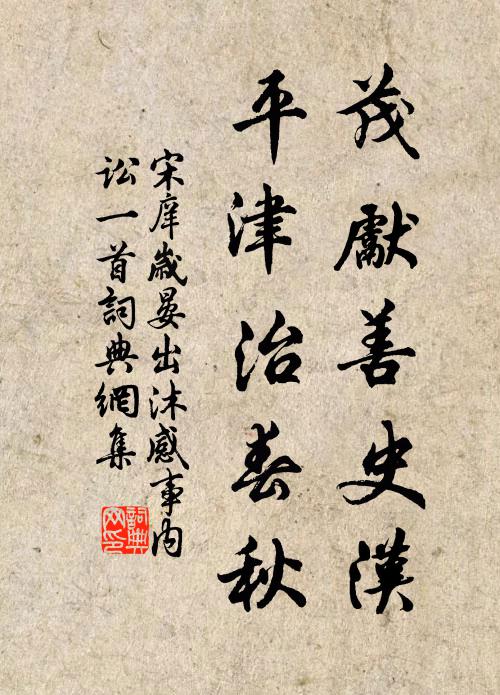 茂獻善史漢
平津治春秋
宋庠歲晏出沐感事內
訟一首詞典網集